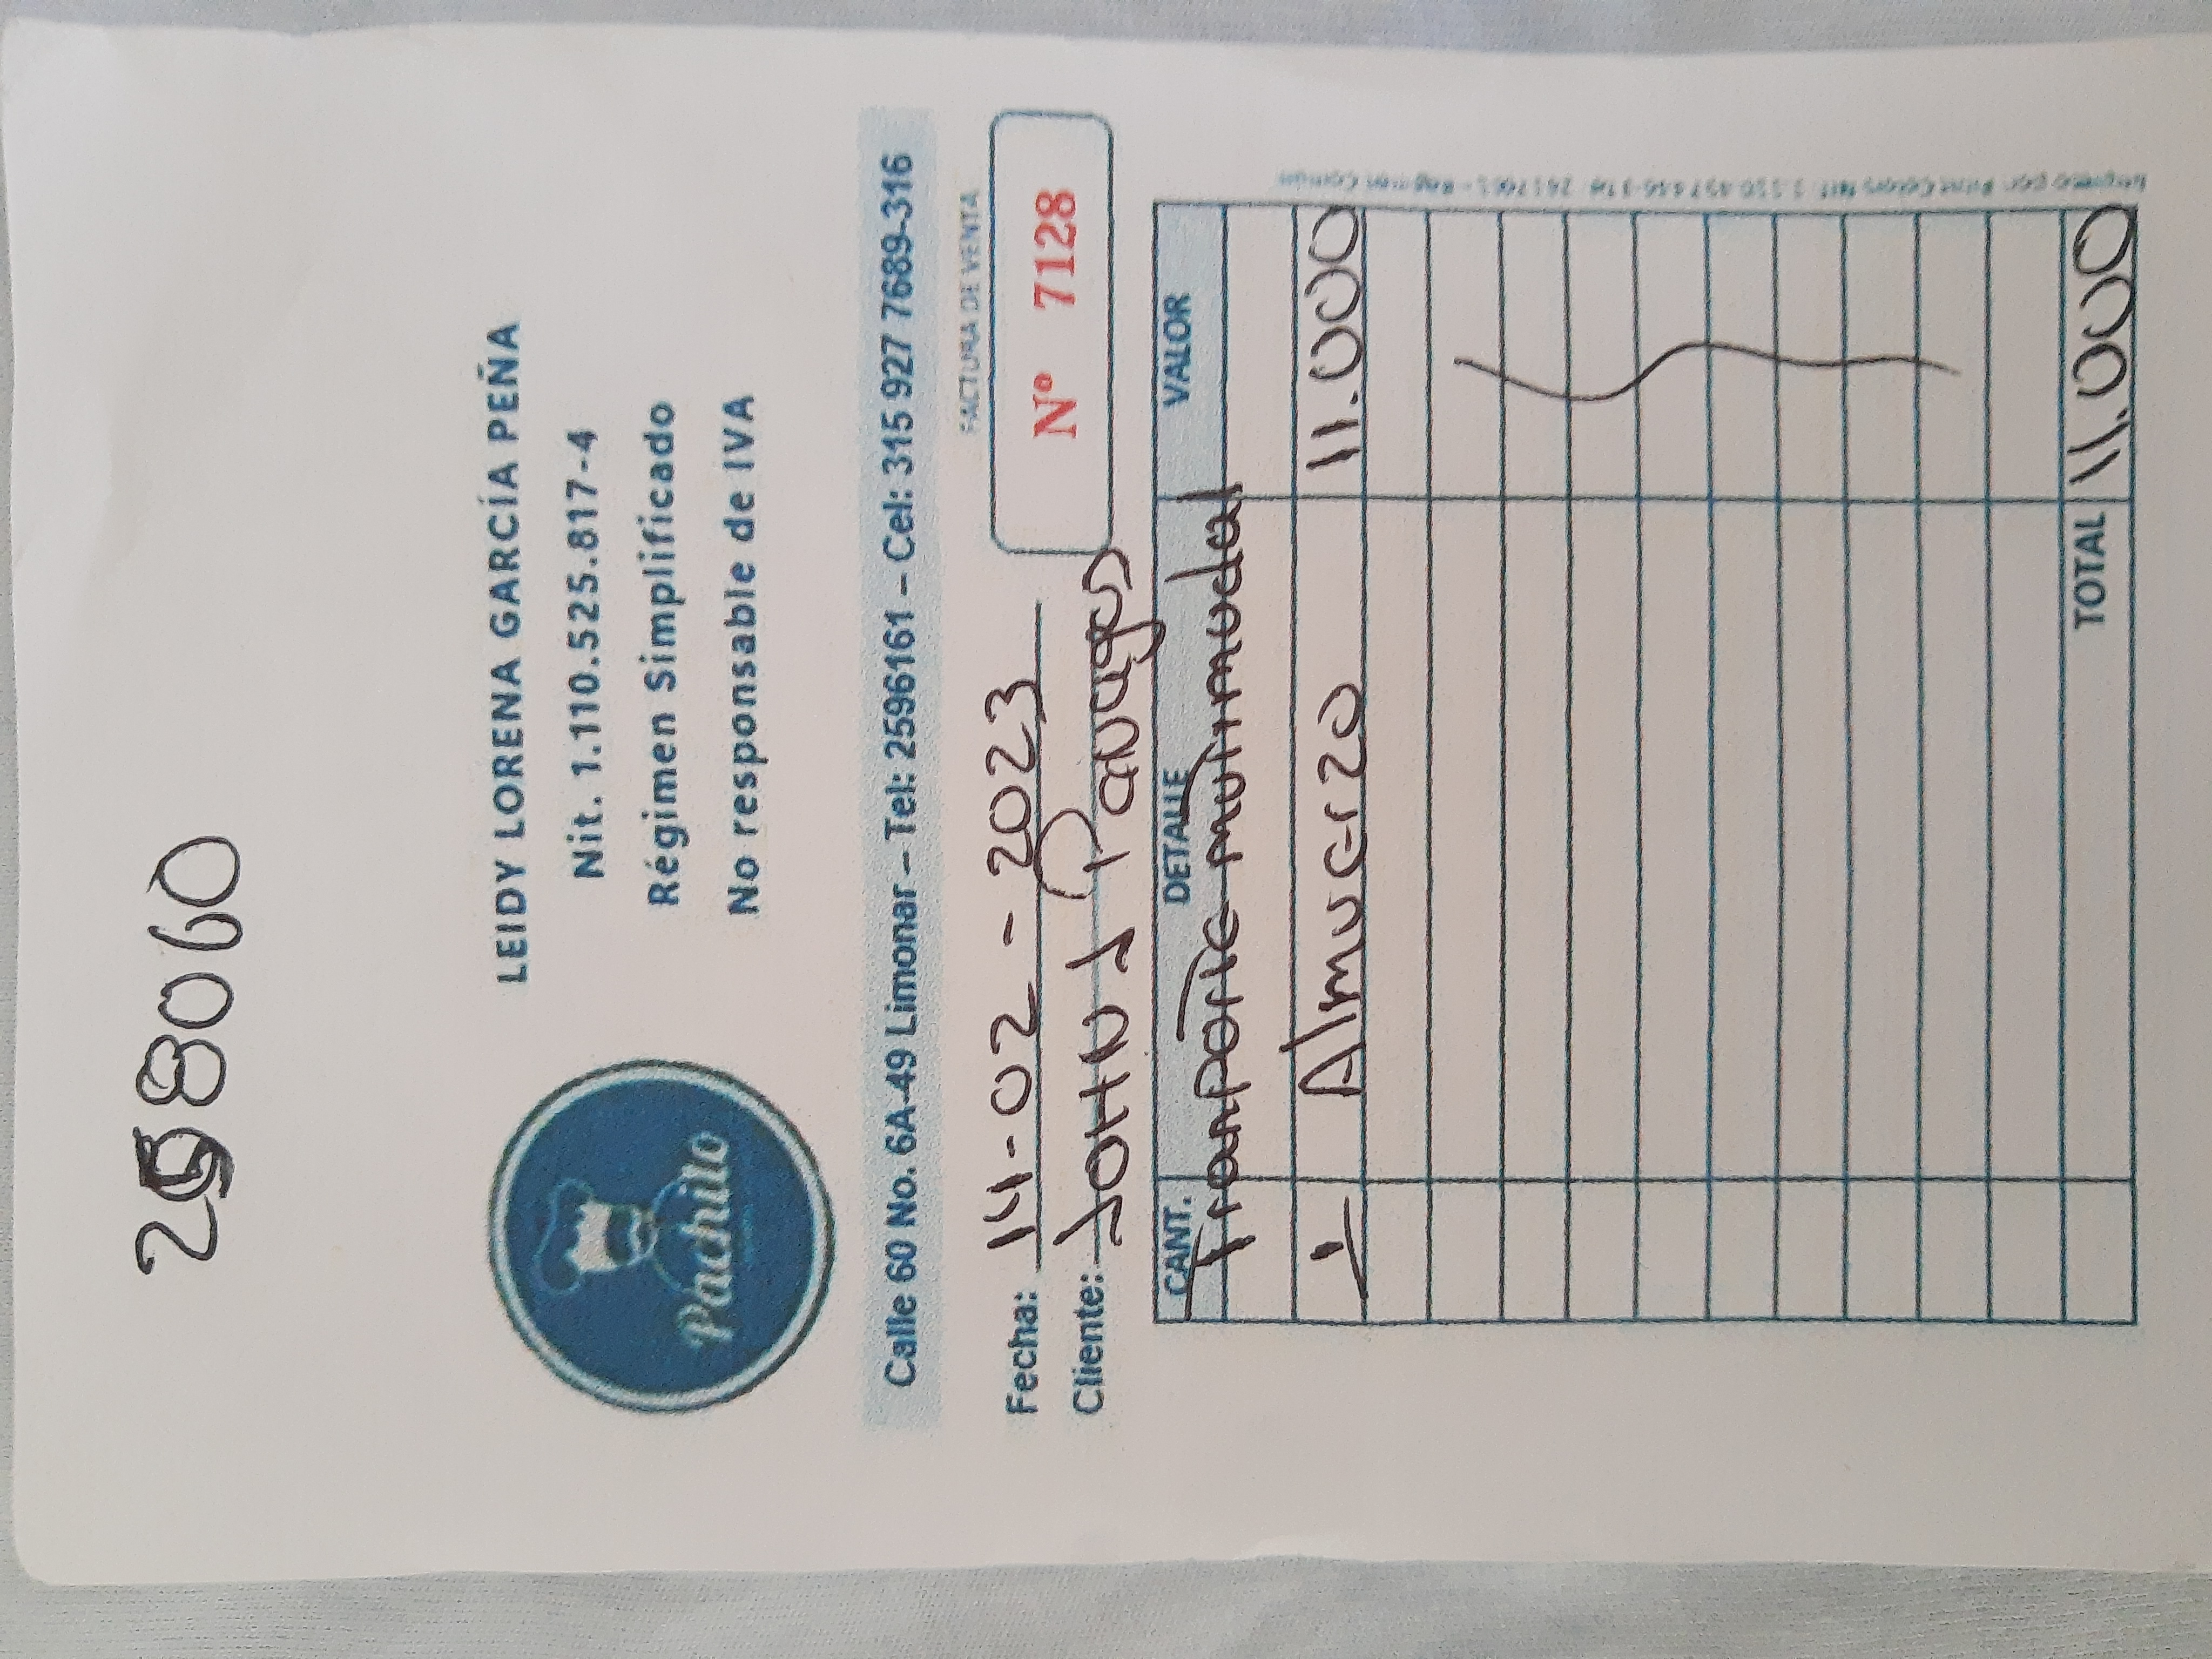 258060
LEIDY LORENA GARCÍA PEÑA
Nit. 1.110.525.817-4
Régimen Simplificado
No responsable de IVA
Pachito
Calle 60 No. 6A-49 Limonar – Tel: 2596161 – Cel: 315 927 7689-316
FACTURA DE VENTA
Nº 7128
Fecha: 14-02-2023
Cliente: JOHN J
CANT. DETALLE VALOR
1 Almuerzo 11.000
TOTAL 11.000
Impreso por: Print Colors Nit: